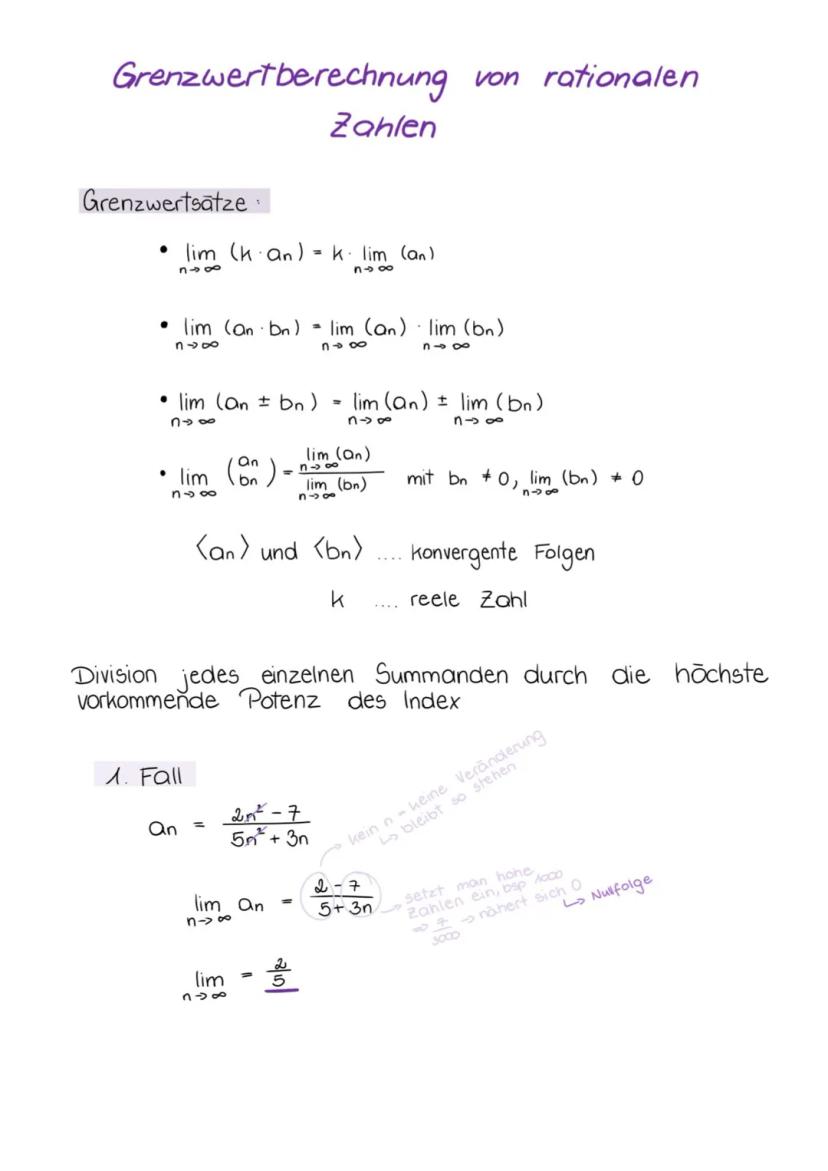 Grenzwertberechnung von rationalen
Zahlen
Grenzwertsätze :
• lim n→∞ (k · an) = k · lim n→∞ (an)
• lim n→∞ (an · bn) = lim n→∞ (an) · lim n→∞ (bn)
• lim n→∞ (an ± bn) = lim n→∞ (an) ± lim n→∞ (bn)
• lim n→∞ (an/bn) = lim n→∞ (an) / lim n→∞ (bn) mit bn ≠ 0, lim n→∞ (bn) ≠ 0
⟨an⟩ und ⟨bn⟩ .... konvergente Folgen
k .... reele Zahl
Division jedes einzelnen Summanden durch die höchste
vorkommende Potenz des Index
1. Fall
an = (2n² - 7) / (5n² + 3n)
kein n = keine Veränderung
↳ bleibt so stehen
lim n→∞ an = (2 - 7) / (5 + 3n)
setzt man hohe
Zahlen ein, bsp 1000
⇒ 7/3000 → nähert sich 0
↳ Nullfolge
lim n→∞ = 2/5